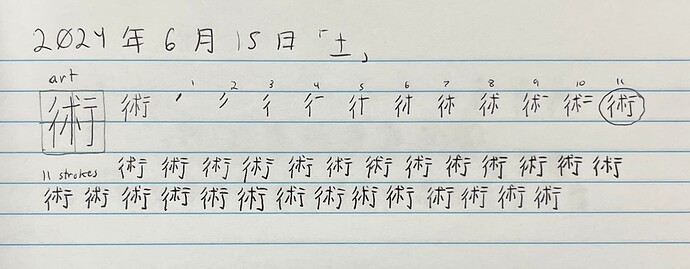 2024年6月15日「土」
art
1 2 3 4 5 6 7 8 9 10 11
術 術 術
11 strokes 術 術 術 術 術 術 術 術 術 術 術 術 術
術 術 術 術 術 術 術 術 術 術 術 術 術 術